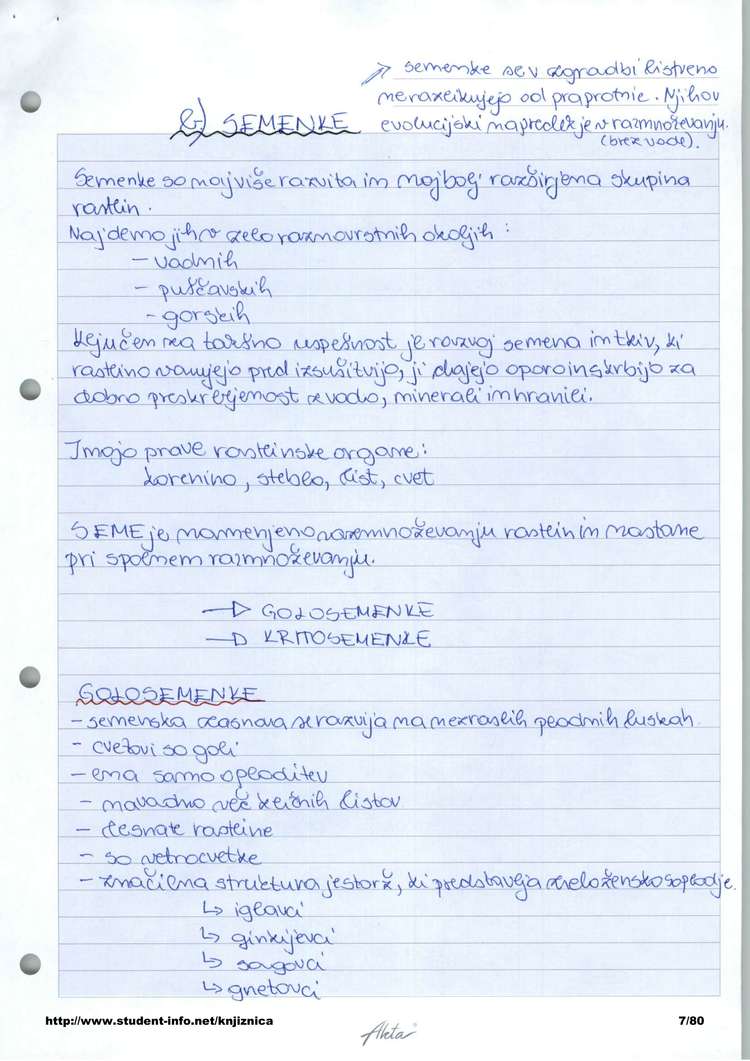 → semenke se v zgradbi bistveno
ne razlikujejo od praprotnic. Njihov
evolucijski napredek je v razmnoževanju.
(brez vode).
b) SEMENKE
Semenke so najviše razvita in najbolj razširjena skupina
rastlin.
Najdemo jih v zelo raznovrstnih okoljih:
- vodnih
- puščavskih
- gorskih
Ključen za takšno uspešnost je razvoj semena in tkiv, ki
rastlino varujejo pred izsušitvijo, ji dajejo oporo in skrbijo za
dobro preskrbljenost z vodo, minerali in hranili.
Imajo prave rastlinske organe:
korenino, steblo, list, cvet
SEME je namenjeno razmnoževanju rastlin in nastane
pri spolnem razmnoževanju.
→ GOLOSEMENKE
→ KRITOSEMENKE
GOLOSEMENKE
- semenska zasnova se razvija na nezraslih plodnih luskah.
- cvetovi so goli
- ena samo oploditev
- navadno več kličnih listov
- lesnate rastline
- so vetrocvetke
- značilna struktura je storž, ki predstavlja zrelo žensko soplodje.
↳ iglavci
↳ ginkijevci
↳ sagovci
↳ gnetovci
http://www.student-info.net/knjiznica
7/80
Akta